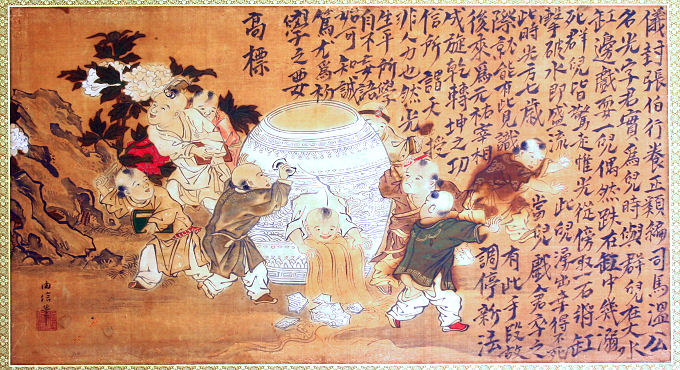 儀封張伯行養正類編司馬溫公
名光字君實爲兒時與群兒在大水
缸邊戲耍一兒偶然跌在缸中幾溺
死群兒皆驚走惟光從傍取石將缸
擊破水即盛流此兒浮出幸得不死
此時光方七歲當兒戲倉卒之
際就能有此見識有此手段故
後來爲元祐宰相調停新法
成旋乾轉坤之功
信所謂天授
非人力也然光
生平所
自不妄語
始可知誠
篤尤爲
學之要
高標
由信筆